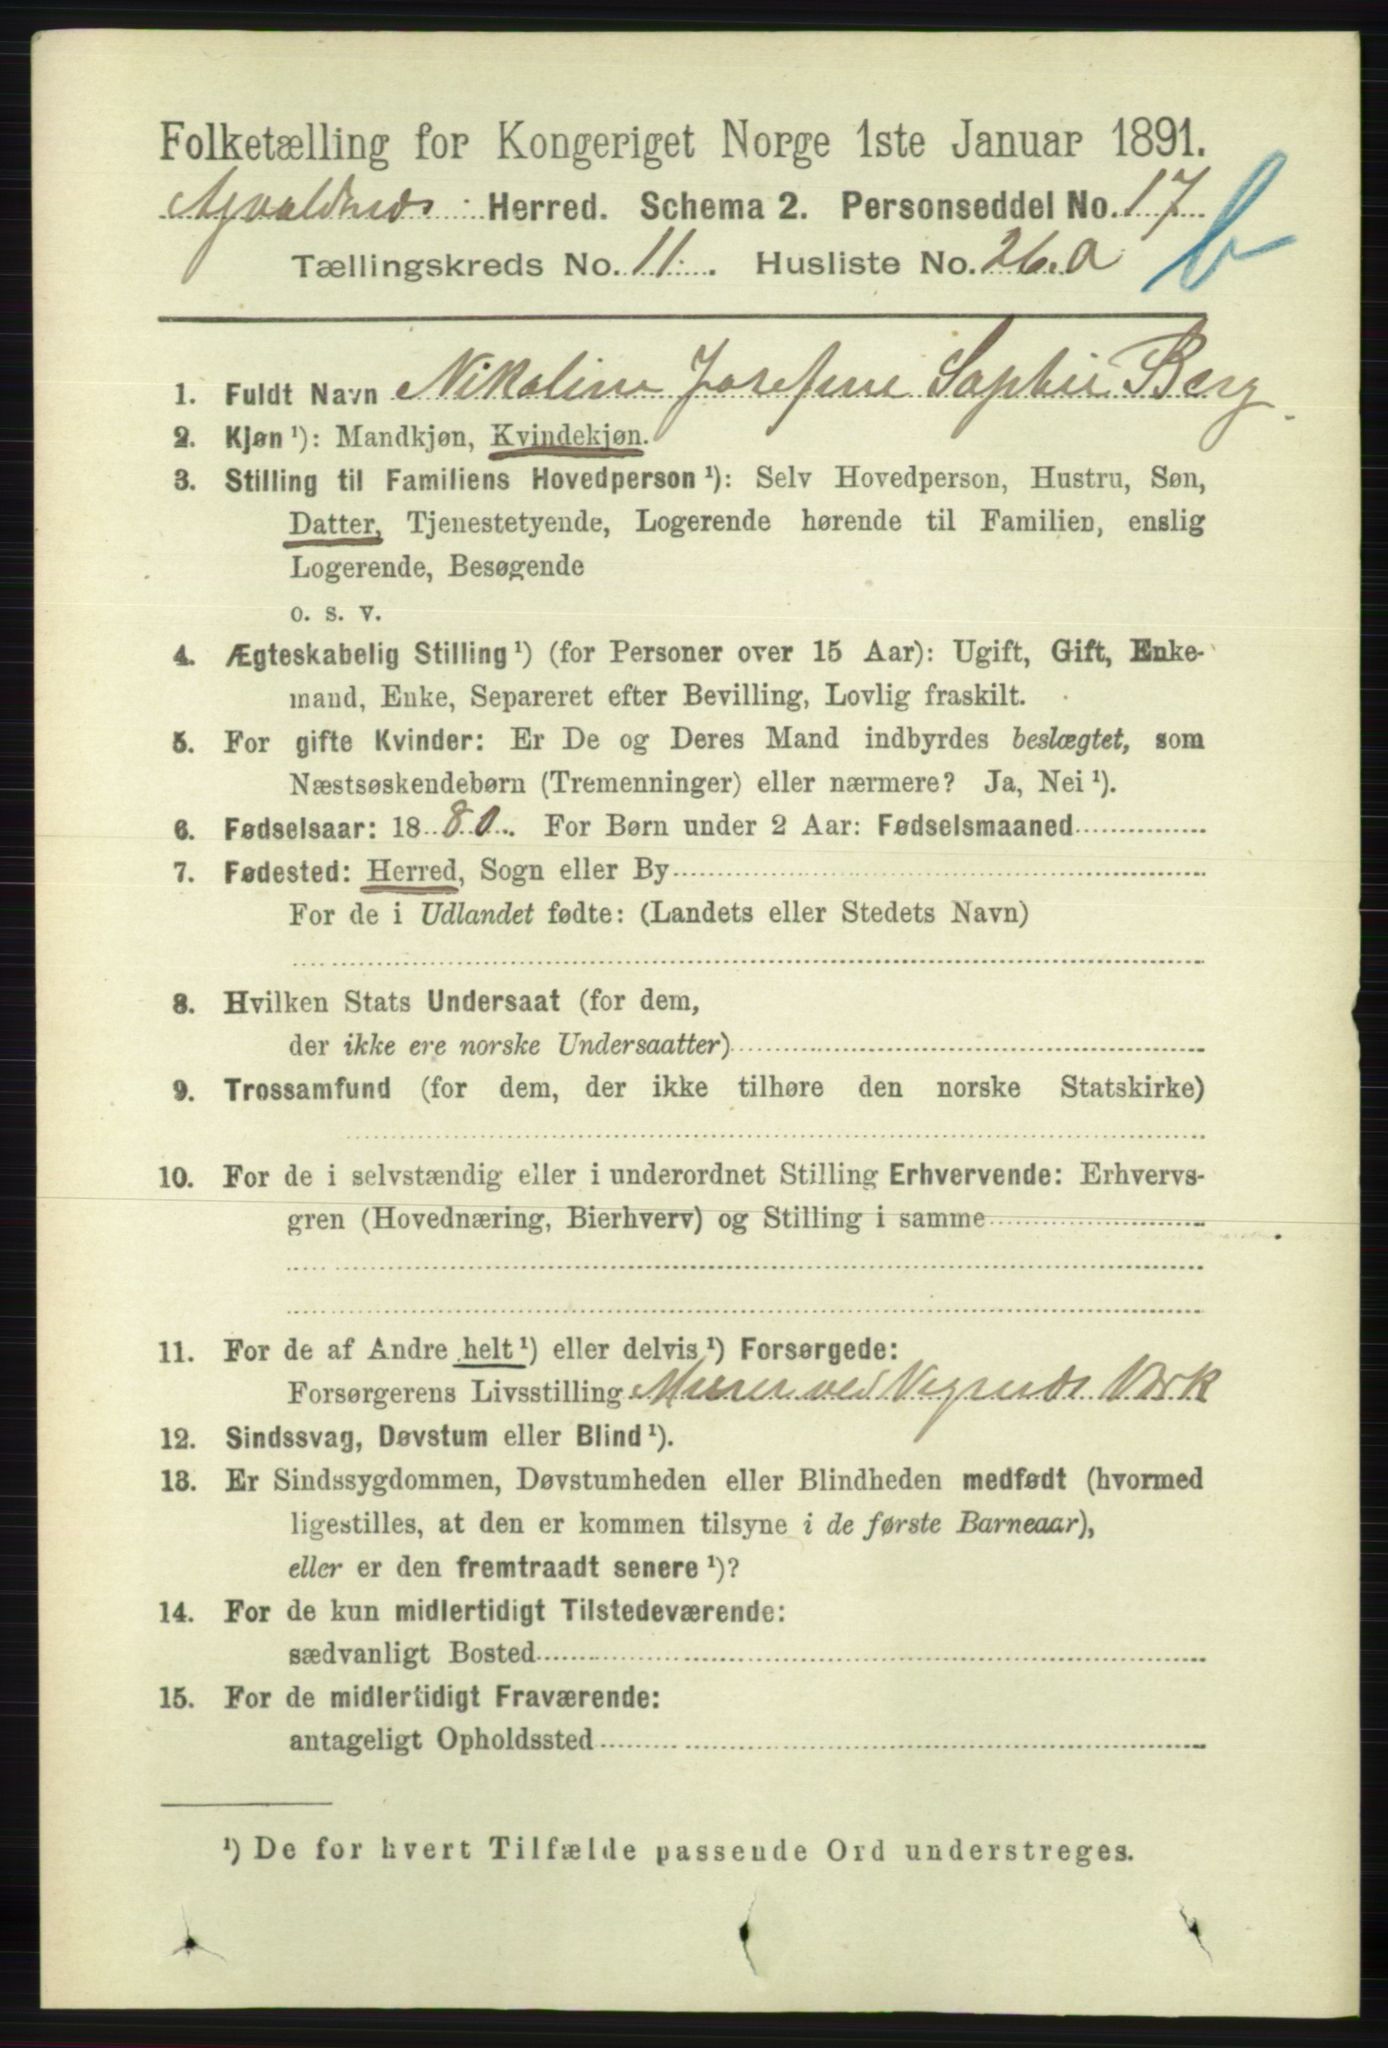 Folketælling for Kongeriget Norge 1ste Januar 1891.
Avaldsnes Herred. Schema 2. Personseddel No. 17
b
Tællingskreds No. 11. Husliste No. 26.a
1. Fuldt Navn Nikoline Josefine Sophie Berg
2. Kjøn ¹): Mandkjøn, Kvindekjøn.
3. Stilling til Familiens Hovedperson ¹): Selv Hovedperson, Hustru, Søn,
Datter, Tjenestetyende, Logerende hørende til Familien, enslig
Logerende, Besøgende
o. s. v.
4. Ægteskabelig Stilling ¹) (for Personer over 15 Aar): Ugift, Gift, Enke-
mand, Enke, Separeret efter Bevilling, Lovlig fraskilt.
5. For gifte Kvinder: Er De og Deres Mand indbyrdes beslægtet, som
Næstsøskendebørn (Tremenninger) eller nærmere? Ja, Nei ¹).
6. Fødselsaar: 1880. For Børn under 2 Aar: Fødselsmaaned
7. Fødested: Herred, Sogn eller By
For de i Udlandet fødte: (Landets eller Stedets Navn)
8. Hvilken Stats Undersaat (for dem,
der ikke ere norske Undersaatter)
9. Trossamfund (for dem, der ikke tilhøre den norske Statskirke)
10. For de i selvstændig eller i underordnet Stilling Erhvervende: Erhvervs-
gren (Hovednæring, Bierhverv) og Stilling i samme
11. For de af Andre helt ¹) eller delvis ¹) Forsørgede:
Forsørgerens Livsstilling Murer ved Vigsnæs Værk
12. Sindssvag, Døvstum eller Blind ¹).
13. Er Sindssygdommen, Døvstumheden eller Blindheden medfødt (hvormed
ligestilles, at den er kommen tilsyne i de første Barneaar),
eller er den fremtraadt senere ¹)?
14. For de kun midlertidigt Tilstedeværende:
sædvanligt Bosted
15. For de midlertidigt Fraværende:
antageligt Opholdssted
¹) De for hvert Tilfælde passende Ord understreges.